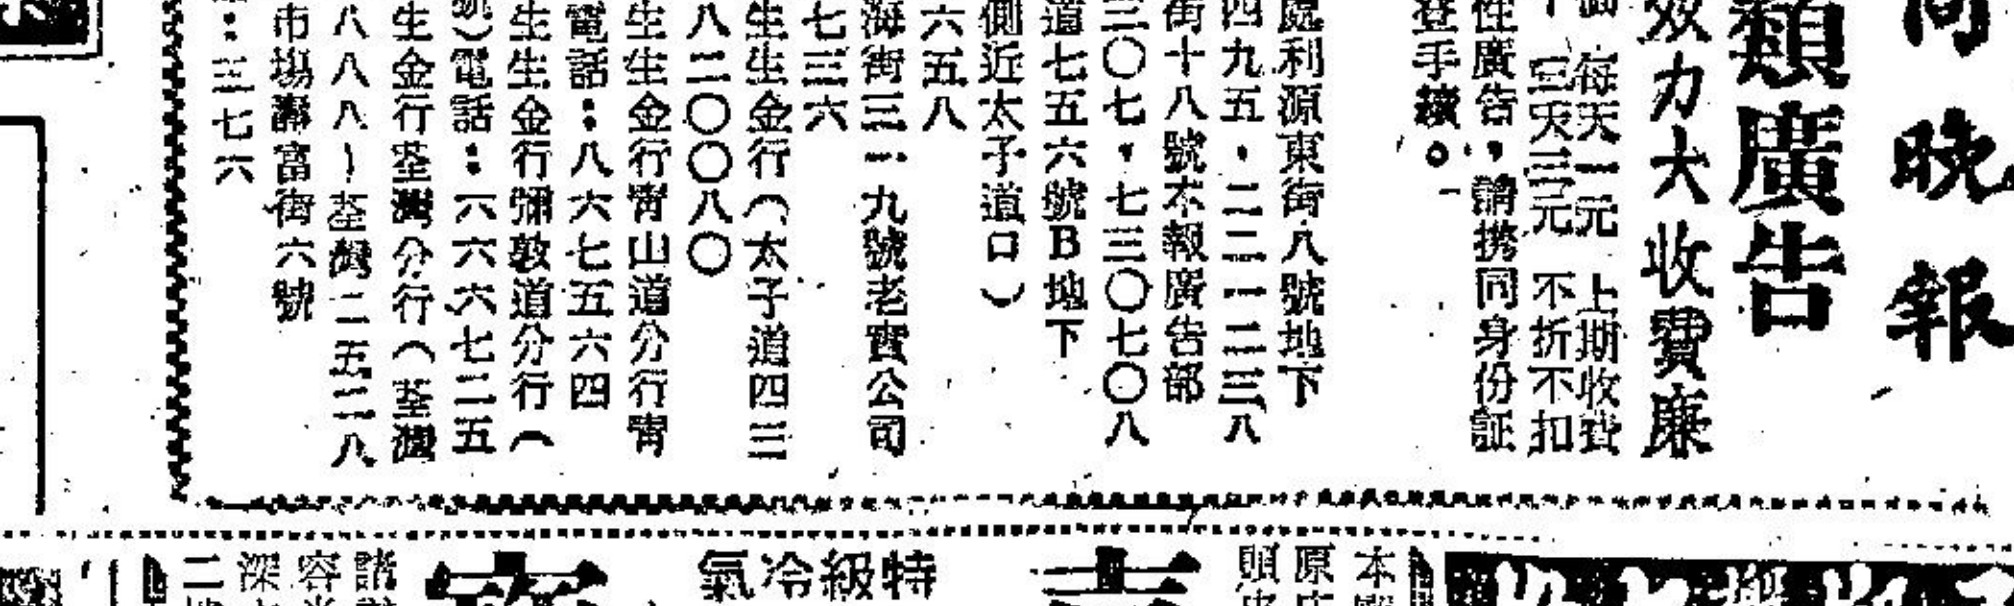 晚報
類廣告
效力大收費廉
每天一元 上期收費
三天三元 不折不扣
性廣告，請携同身份証
登手續。
處利源東街八號地下
四九五．二二一二三八
街十八號本報廣告部
三〇七，七三〇七〇八
道七五六號B地下
側近太子道口）
六五八
海街三一九號老實公司
七三六
生生金行（太子道四三
八二〇〇八〇
生生金行青山道分行青
電話：八六七五六四
生生金行彌敦道分行（
號）電話：六六六七二五
生金行荃灣分行（荃灣
八八八）荃灣二五二八
市場壽富街六號
：三七六
特級冷氣
本
原
頭
諸
容
深
二